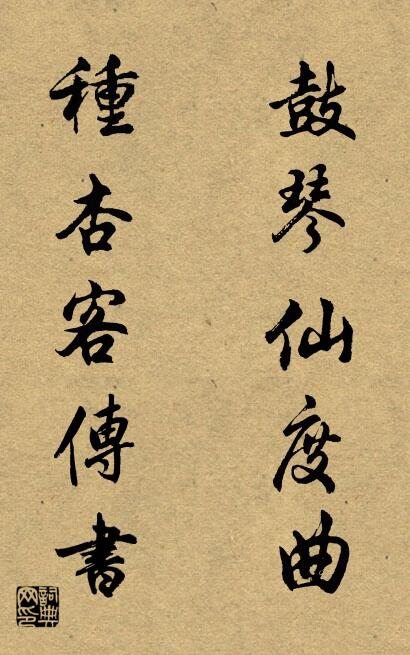 鼓琴仙度曲
種杏客傳書
詞典網印